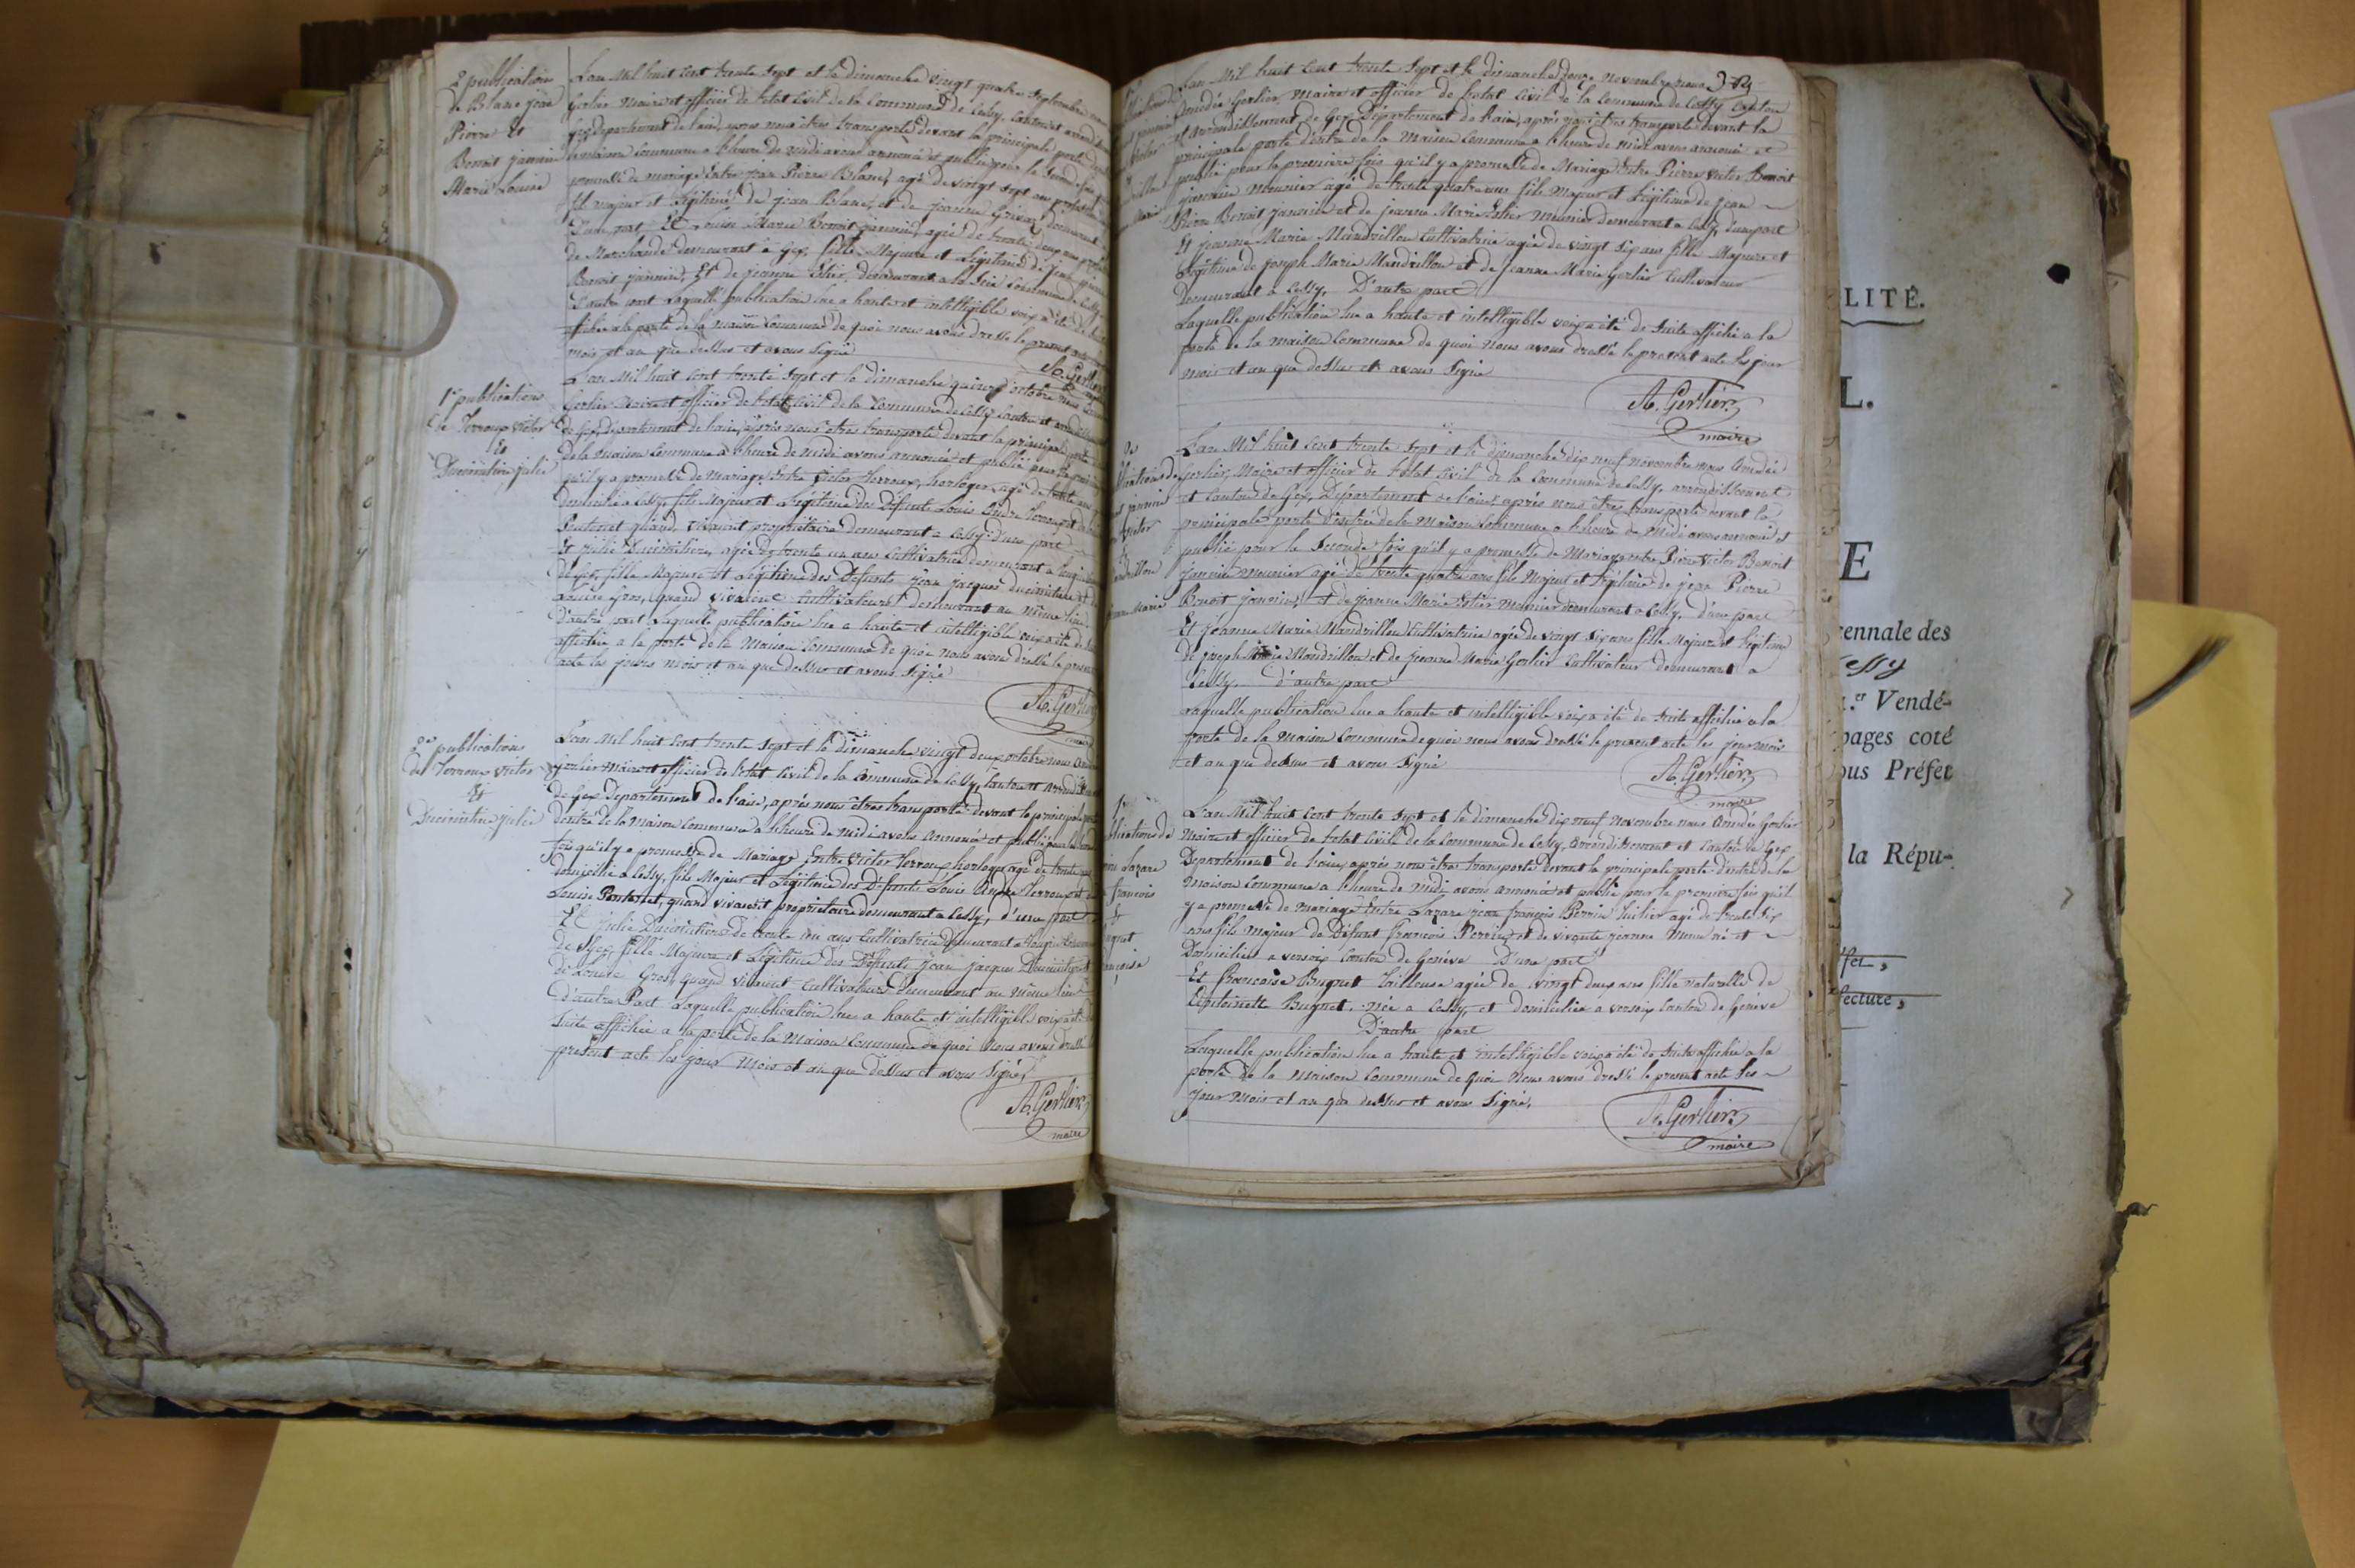 2 publication
de Blanc jean
Pierre Et
Benoit jannin
Marie Louise
L'an Mil huit Cent trente Sept et le dimanche vingt quatre Septembre
Gerlier Maire et officier de l'état Civil de la Commune de Cessy, Canton et
Gex département de l'ain, après nous être transporté devant la principale porte
maison Commune a l'heure de midi avons annoncé et publié pour la Seconde fois
promesse de mariage Entre jean Pierre Blanc, agé de vingt Sept ans
fils majeur et Légitime de jean Blanc, et de jeanne
D'une part Et Louise Marie Benoit jannin, agée de trente deux ans
de Marchande demeurant à Gex, fille Majeure et Légitime de jean
Benoit jannin, Et de jeanne demeurant a la Commune de Cessy
D'autre part Laquelle publication lue a haute et intelligible voix a été de
affichée a la porte de la maison Commune de quoi nous avons dressé le présent acte
mois et an que dessus et avons Signé
A. Gerlier
1re publications
de Terroux victor
Et
Ducimetière julie
L'an Mil huit Cent trente Sept et le dimanche quinze octobre nous
Gerlier Maire et officier de l'état Civil de la Commune de Cessy Canton et
de Gex, Département de l'ain, après nous être transporté devant la principale porte
de la Maison Commune a l'heure de midi avons annoncé et publié pour la
qu'il y a promesse de Mariage Entre Victor Terroux, horloger, agé de trente ans
domicilié a Cessy, fils Majeur et Légitime des Défunts Louis André Terroux et
quand vivaient propriétaire demeurant a Cessy d'une part
Et julie Ducimetière, agée de trente un ans Cultivatrice demeurant a
de Gex, fille Majeure et Légitime des Défunts jean jacques ducimetière et
Louise Gros, quand vivaient Cultivateurs demeurant au même lieu
D'autre part Laquelle publication lue a haute et intelligible voix a été de
affichée a la porte de la Maison Commune de quoi nous avons dressé le présent
acte les jours mois et an que dessus et avons Signé
A. Gerlier
maire
2e publications
de Terroux victor
Et
Ducimetière julie
L'an Mil huit Cent trente Sept et le dimanche vingt deux octobre nous
Gerlier Maire et officier de l'état Civil de la Commune de Cessy, Canton et
de Gex Département de l'ain, après nous être transporté devant la principale
d'entrée de la Maison Commune a l'heure de midi avons annoncé et publié pour la
fois qu'il y a promesse de Mariage Entre Victor Terroux horloger agé de trente
domicilié a Cessy, fils Majeur et Légitime des Défunts Louis André Terroux et
Louise quand vivaient propriétaire demeurant a Cessy, d'une part
Et julie Ducimetière de trente un ans Cultivatrice demeurant a
de Gex, fille Majeure et Légitime des Défunts jean jacques Ducimetière
de Louise Gros, quand vivaient Cultivateurs demeurant au même lieu
d'autre Part Laquelle publication lue a haute et intelligible voix a été
Suite affichée a la porte de la Maison Commune de quoi nous avons dressé
présent acte les jour Mois et an que dessus et avons Signé
A. Gerlier
maire
374
L'an Mil huit Cent trente Sept et le dimanche douze novembre nous
Amédé Gerlier, Maire et officier de l'état Civil de la Commune de Cessy Canton
et arrondissement de Gex, Département de l'ain, après nous être transporté devant la
principale porte d'entrée de la Maison Commune a l'heure de midi avons annoncé et
publié pour la première fois qu'il y a promesse de Mariage Entre Pierre Victor Benoit
jannin Meunier agé de trente quatre ans fils Majeur et Légitime de jean
Pierre Benoit jannin et de jeanne Marie meunier demeurant a Cessy, d'une part
Et jeanne Marie Mandrillon Cultivatrice agée de vingt Six ans fille Majeure et
Légitime de joseph Marie Mandrillon et de jeanne Marie Gerlier Cultivateur
demeurant a Cessy, D'autre part
Laquelle publication lue a haute et intelligible voix a été de Suite affichée a la
porte de la maison Commune de quoi nous avons dressé le présent acte les jour
mois et an que dessus et avons Signé
A. Gerlier
maire
2e
L'an Mil huit Cent trente Sept et le dimanche dix neuf novembre nous Amédé
Gerlier, Maire et officier de l'état Civil de la Commune de Cessy, arrondissement
et Canton de Gex, Département de l'ain, après nous être transporté devant la
principale porte d'entrée de la Maison Commune a l'heure de Midi avons annoncé et
publié pour la Seconde fois qu'il y a promesse de Mariage entre Pierre Victor Benoit
jannin meunier agé de trente quatre ans fils Majeur et Légitime de jean Pierre
Benoit jannin, et de jeanne Marie meunier demeurant a Cessy, d'une part
Et jeanne Marie Mandrillon Cultivatrice agée de vingt Six ans fille Majeure et Légitime
de joseph Marie Mandrillon et de jeanne Marie Gerlier Cultivateur demeurant a
Cessy, d'autre part
Laquelle publication lue a haute et intelligible voix a été de Suite affichée a la
porte de la Maison Commune de quoi nous avons dressé le présent acte les jour mois
et an que dessus et avons Signé
A. Gerlier
maire
L'an Mil huit Cent trente Sept et le dimanche dix neuf Novembre nous Amédé Gerlier
Maire et officier de l'état Civil de la Commune de Cessy, arrondissement et Canton de Gex
Département de l'ain, après nous être transporté devant la principale porte d'entrée de la
Maison Commune a l'heure de midi, avons annoncé et publié pour la première fois qu'il
y a promesse de mariage Entre Lazare jean françois Perrin agé de trente Six
ans fils majeur de Défunt francois Perrin, et de vivante jeanne né et
Domicilié a versoix Canton de Genève D'une part
Et francoise Bugnet Tailleuse agée de vingt deux ans fille naturelle de
Bugnet, née a Cessy, et domiciliée a versoix Canton de Genève
D'autre part
Laquelle publication lue a haute et intelligible voix a été de Suite affichée a la
porte de la Maison Commune de quoi Nous avons dressé le présent acte les
jour Mois et an que dessus et avons Signé,
A. Gerlier
maire
LITÉ.
L.
E
cennale des
Cessy
er Vendé-
pages coté
ous Préfet
la Répu-
fet,
fecture,